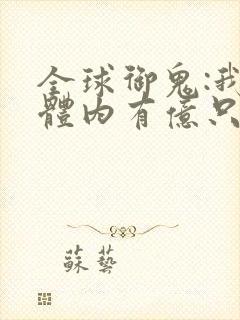 全球御鬼:我
體內有億只
蘇藝